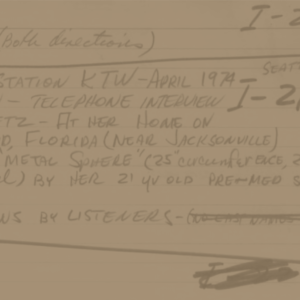 I-2
(Both directions)
STATION KTW-APRIL 1974
- TELEPHONE INTERVIEW I-2
ETZ - AT HER HOME ON
D, FLORIDA (NEAR JACKSONVILLE)
"METAL SPHERE" (25" CIRCUMFERENCE, 2
) BY HER 21 YR OLD PRE-MED S
NS BY LISTENERS-